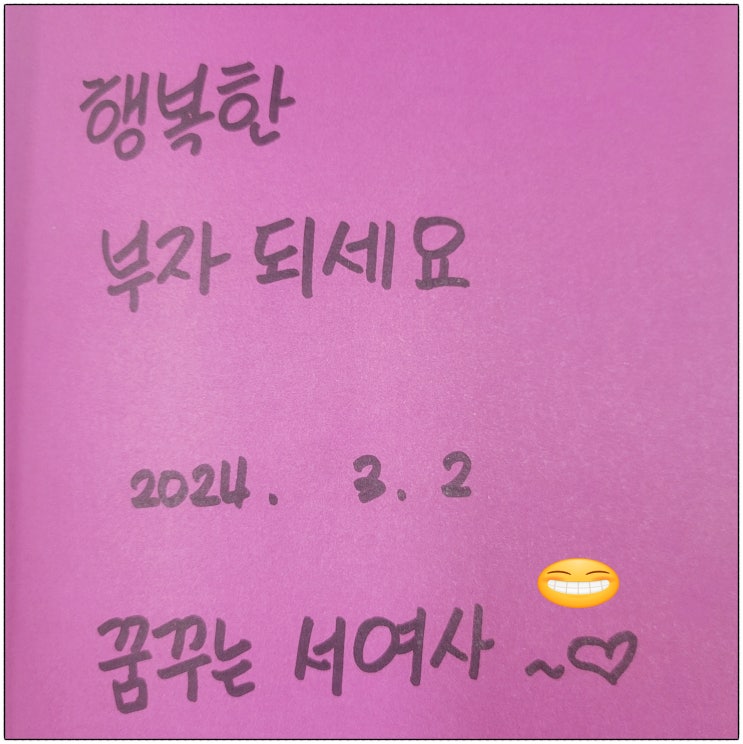 행복한
부자 되세요
2024. 3. 2
꿈꾸는 서여사 ~♡